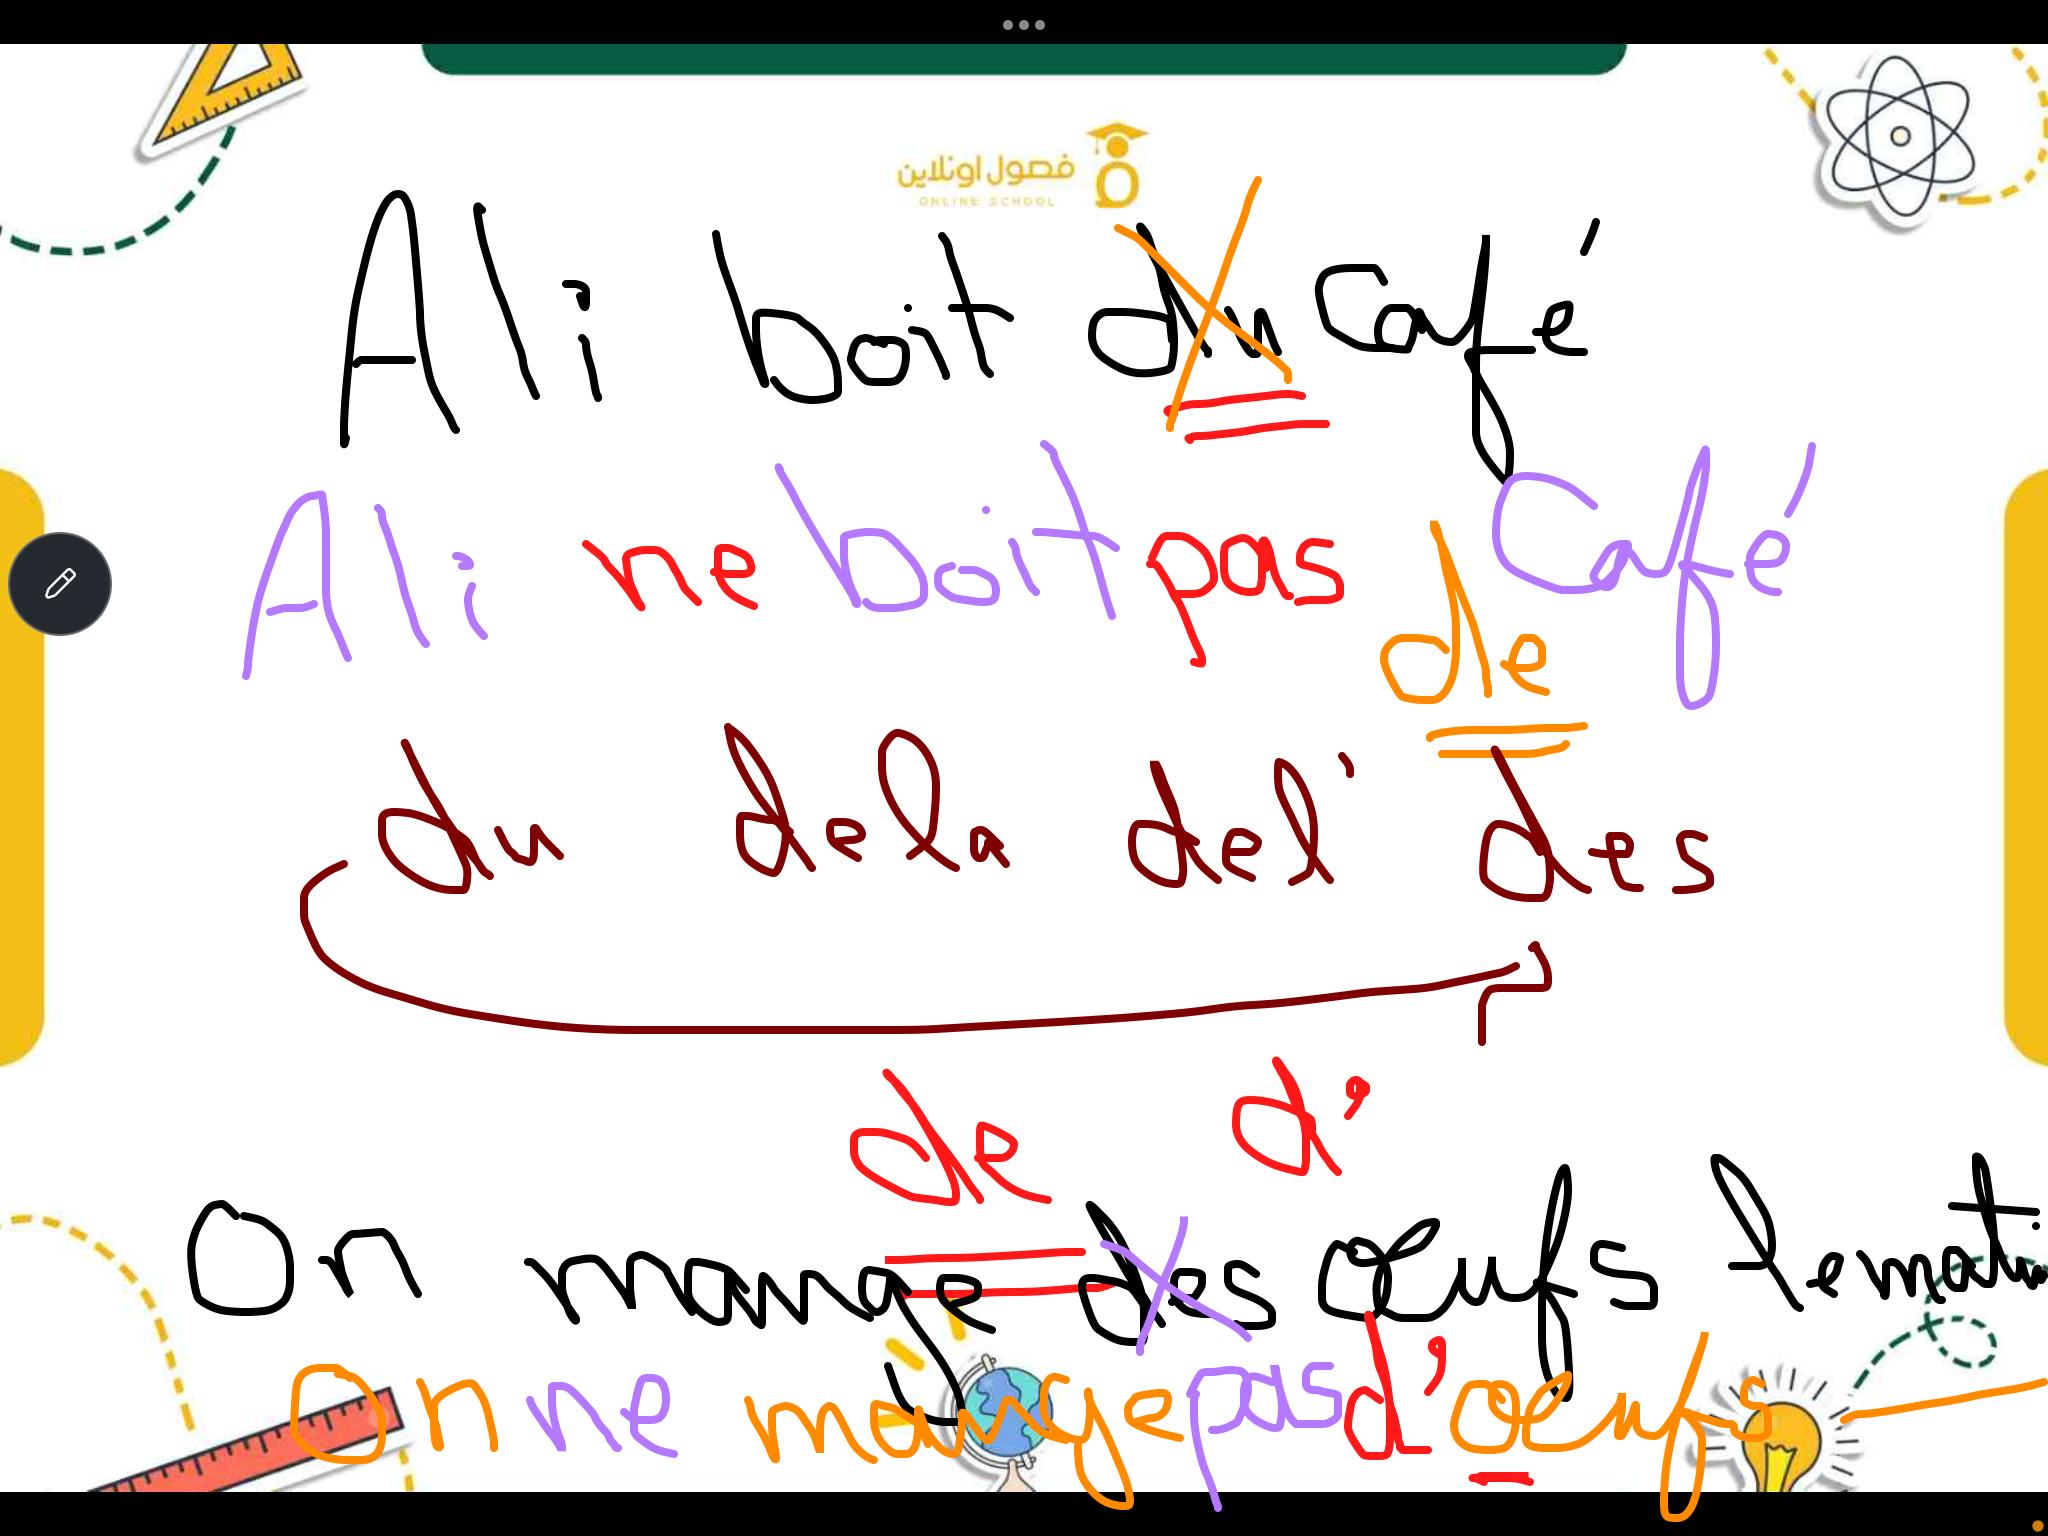 فصول اونلاين
ONLINE SCHOOL
Ali boit du café
Ali ne boit pas de café
du dela del' des
de d'
On mange des œufs le
On ne mange pas d'œufs